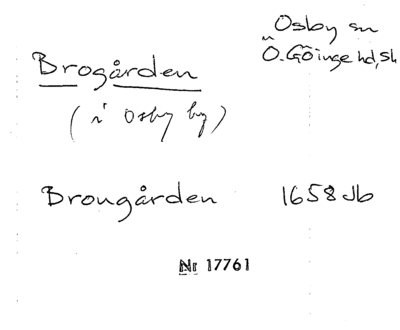 Osby sn
Brogården Ö. Göinge hd, Sk
(i Osby by)
Brongården 1658 Jb
Nr 17761